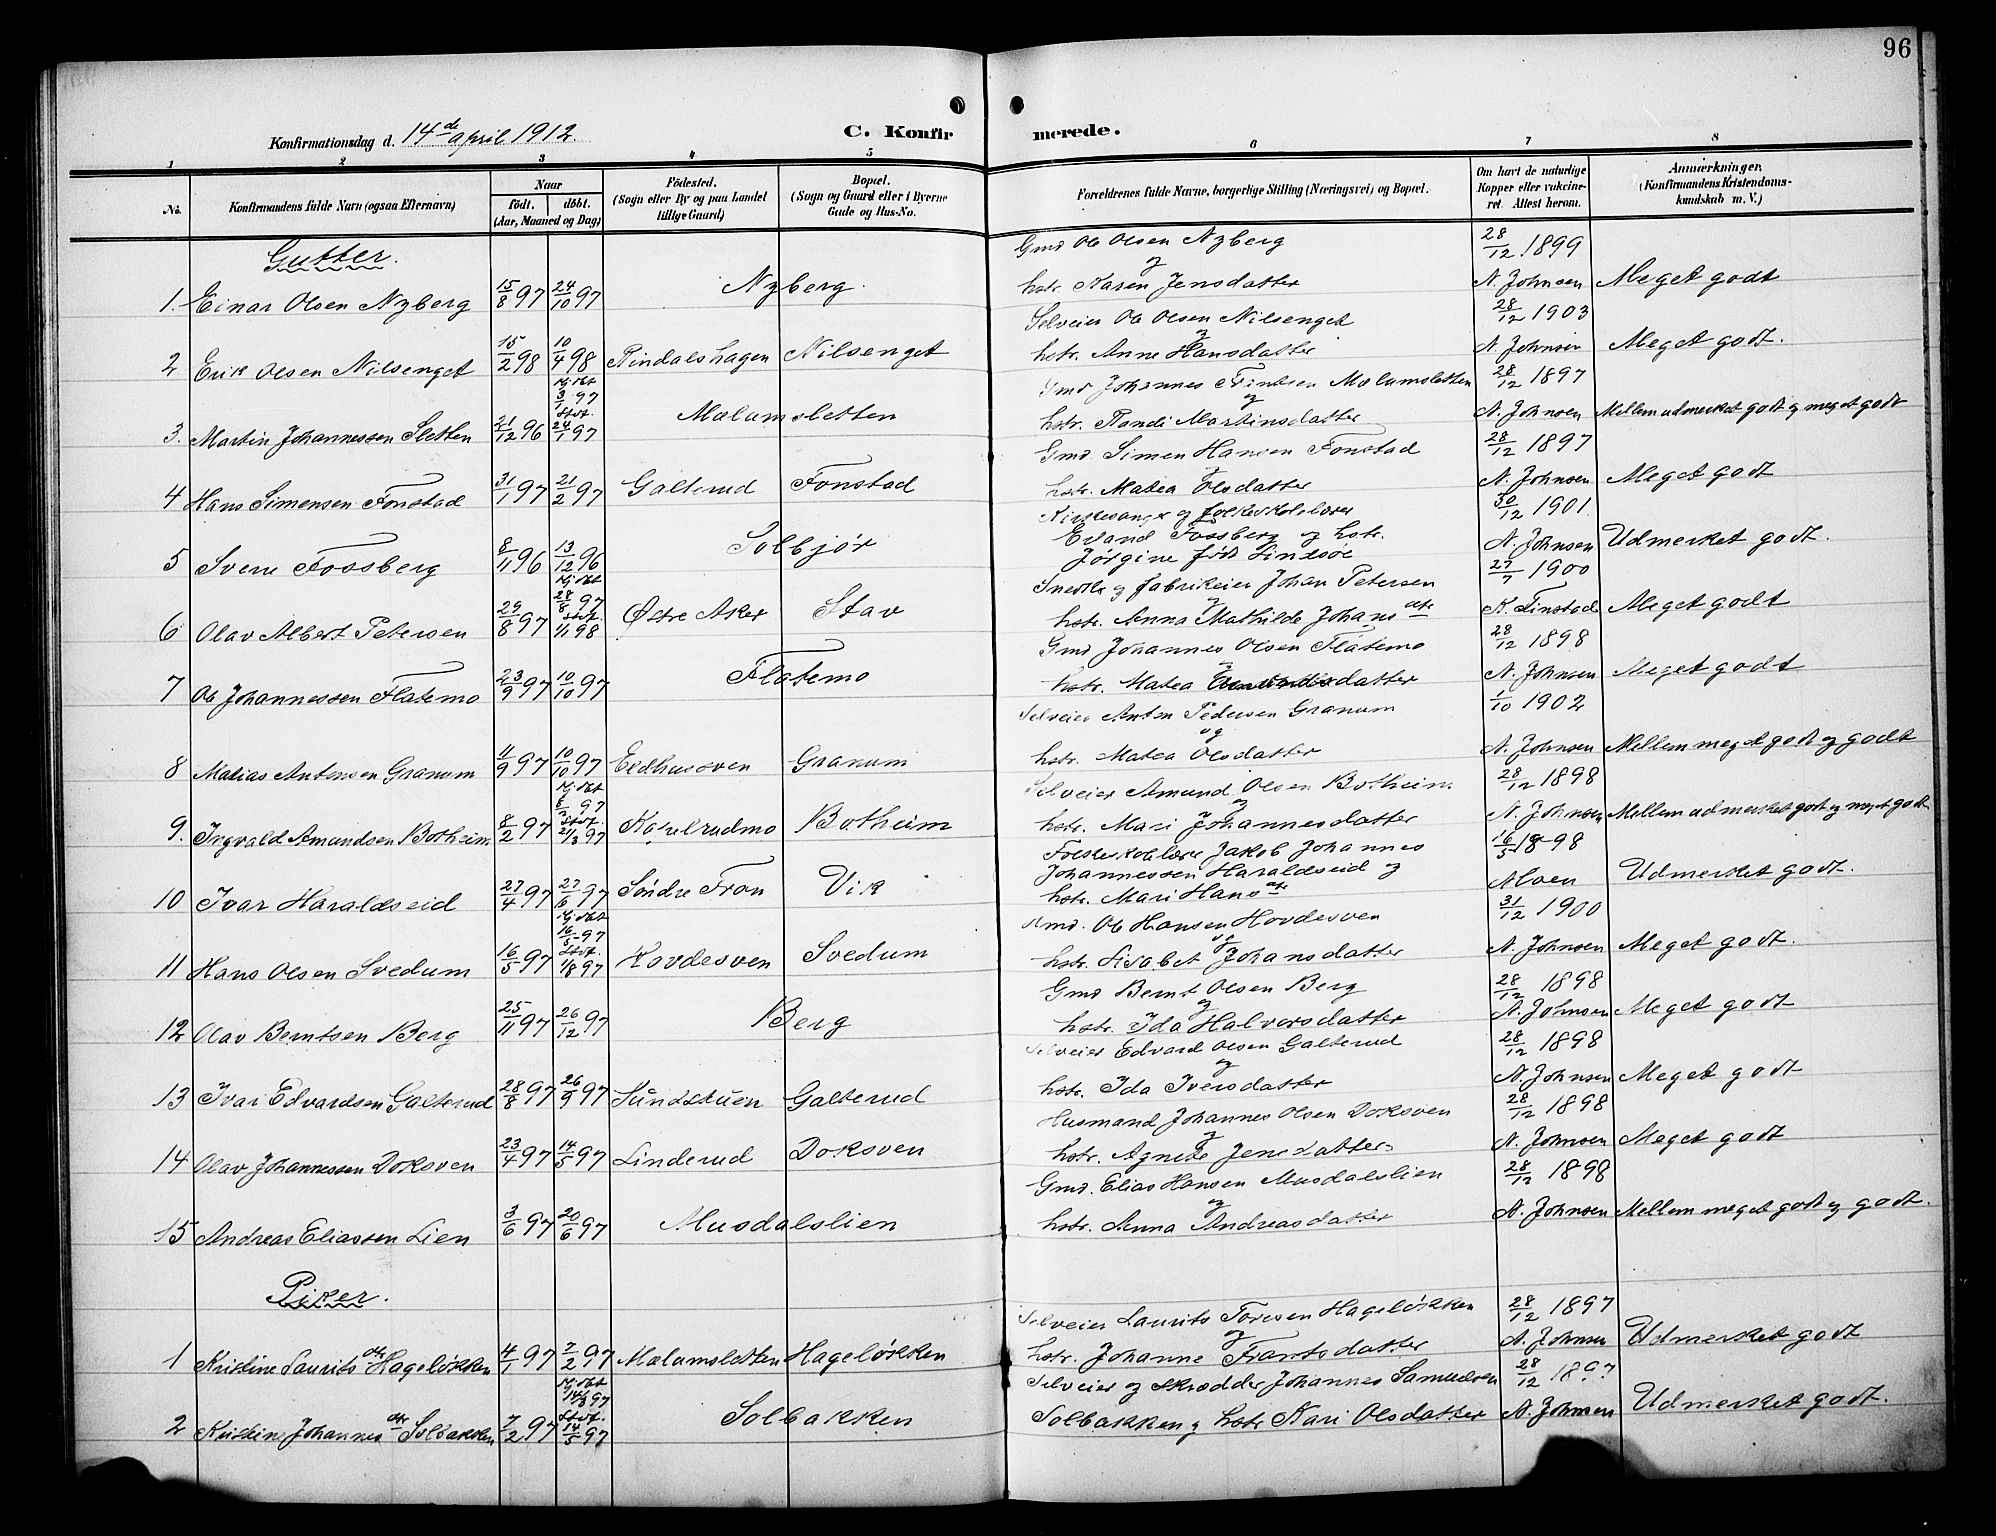 96
Konfirmationsdag d. 14de april 1912.
C. Konfirmerede.
1 2 3 4 5 6 7 8
No. Konfirmandens fulde Navn (ogsaa Efternavn) Naar født. døbt. (Aar, Maaned og Dag) Födested. (Sogn eller By og paa Landet tillige Gaard) Bopæl. (Sogn og Gaard eller i Byerne Gade og Hus-No. Forældrenes fulde Navne, borgerlige Stilling (Næringsvei) og Bopæl. Om havt de naturlige Kopper eller vaccineret Attest herom. Anmærkninger, (Konfirmandens Kristendomskundskab m. V.)
Gutter.
Gmd Ole Olsen Nyberg 28/12 1899
og
1. Einar Olsen Nyberg 15/8 97 24/10 97 Nyberg hstr. Karen Jensdatter N. Johnsen Meget godt
Selveier Ole Olsen Nilsenget 28/12 1903
og
2 Erik Olsen Nilsenget 15/2 98 10/4 98 Rindalshagen Nilsenget hstr. Anne Hansdatter N. Johnsen Meget godt.
Hj.dbt 3/1 97 Gmd Johannes Frantsen Mælumsletten 28/12 1897
og
3. Martin Johannessen Sletten 21/12 96 Stdf. 24/1 97 Mælumsletten hstr. Randi Martinsdatter N. Johnsen Mellem udmerket godt og meget godt
Gmd. Simen Hansen Fonstad 28/12 1897
og
4 Hans Simensen Fonstad 31/1 97 21/2 97 Galterud Fonstad hstr. Matea Olsdatter N. Johnsen Meget godt
Kirkesanger og folkeskolelærer 30/12 1901
Erland Fossberg og hstr.
5 Sverre Fossberg 8/11 96 13/12 96 Solbjør Jørgine født Lindsøe N. Johnsen Udmerket godt.
Hj.dbt 28/8 97 Snedker og fabrikeier Johan Petersen 27/7 1900
og
6 Olav Albert Petersen 29/8 97 Stdf. 1/1 98 Østre Aker Stav hstr. Anna Mathilde Johansdtr K. Finstad Meget godt
Gmd Johannes Olsen Flatemo 28/12 1898
og
7 Ole Johannessen Flatemo 23/9 97 10/10 97 Flatemo hstr. Matea datter N. Johnsen Meget godt
Selveier Anton Pedersen Granum 1/10 1902
og
8 Matias Antonsen Granum 11/9 97 10/10 97 Eedhusøven Granum hstr. Matea Olsdatter N. Johnsen Mellem meget godt og godt
Hj.dbt 8/2 97 Selveier Amund Olsen Botheim 28/12 1898
og
9. Ingvald Amundsen Botheim 8/2 97 Stdf. 21/3 97 Botheim hstr. Mari Johannesdatter N. Johnsen Mellem udmerket godt og meget godt
Folkeskolelærer Jakob Johannes 16/5 1898
Johannessen Haraldseid og
10 Ivar Haraldseid 27/4 97 27/6 97 Søndre Fron Vik hstr. Mari Hansdtr Alven Udmerket godt.
Hj.dbt 16/5 97 Gmd. Ole Hansen Hovdesven 31/12 1900
og
11 Hans Olsen Svedum 16/5 97 Stdf. 1/8 97 Hovdesven Svedum hstr. Lisabet Johansdatter N. Johnsen Meget godt.
Gmd Bernt Olsen Berg 28/12 1898
og
12 Olav Berntsen Berg 25/11 97 26/12 97 Berg hstr. Ida Halvorsdatter N. Johnsen Meget godt
Selveier Edvard Olsen Galterud 28/12 1898
og
13 Ivar Edvardsen Galterud 28/8 97 26/9 97 Sundstuen Galterud hstr. Ida Iversdatter N. Johnsen Meget godt
Husmand Johannes Olsen Doksven 28/12 1898
og
14 Olav Johannessen Doksven 23/4 97 14/5 97 Linderud Doksven hstr. Agnete Jensdatter N. Johnsen Meget godt
Gmd. Elias Hansen Musdalslien 28/12 1898
og
15 Andreas Eliassen Lien 3/6 97 20/6 97 Musdalslien hstr. Anna Andreasdatter N. Johnsen Mellem meget godt og godt.
Piker.
Selveier Laurits Toresen Hageløkken 28/12 1897
og
1 Kristine Lauritsdtr Hageløkken 4/1 97 7/2 97 Mælumsletten Hageløkken hstr. Johanne Frantsdatter N. Johnsen Udmerket godt
Hj.dbt 14/3 97 Selveier og skrædder Johannes Samuelsen 28/12 1897
2 Kristine Johannesdtr Solbakken 7/2 97 Stdf. 14/5 97 Solbakken Solbakken og hstr Kari Olsdatter N. Johnsen Udmerket godt.